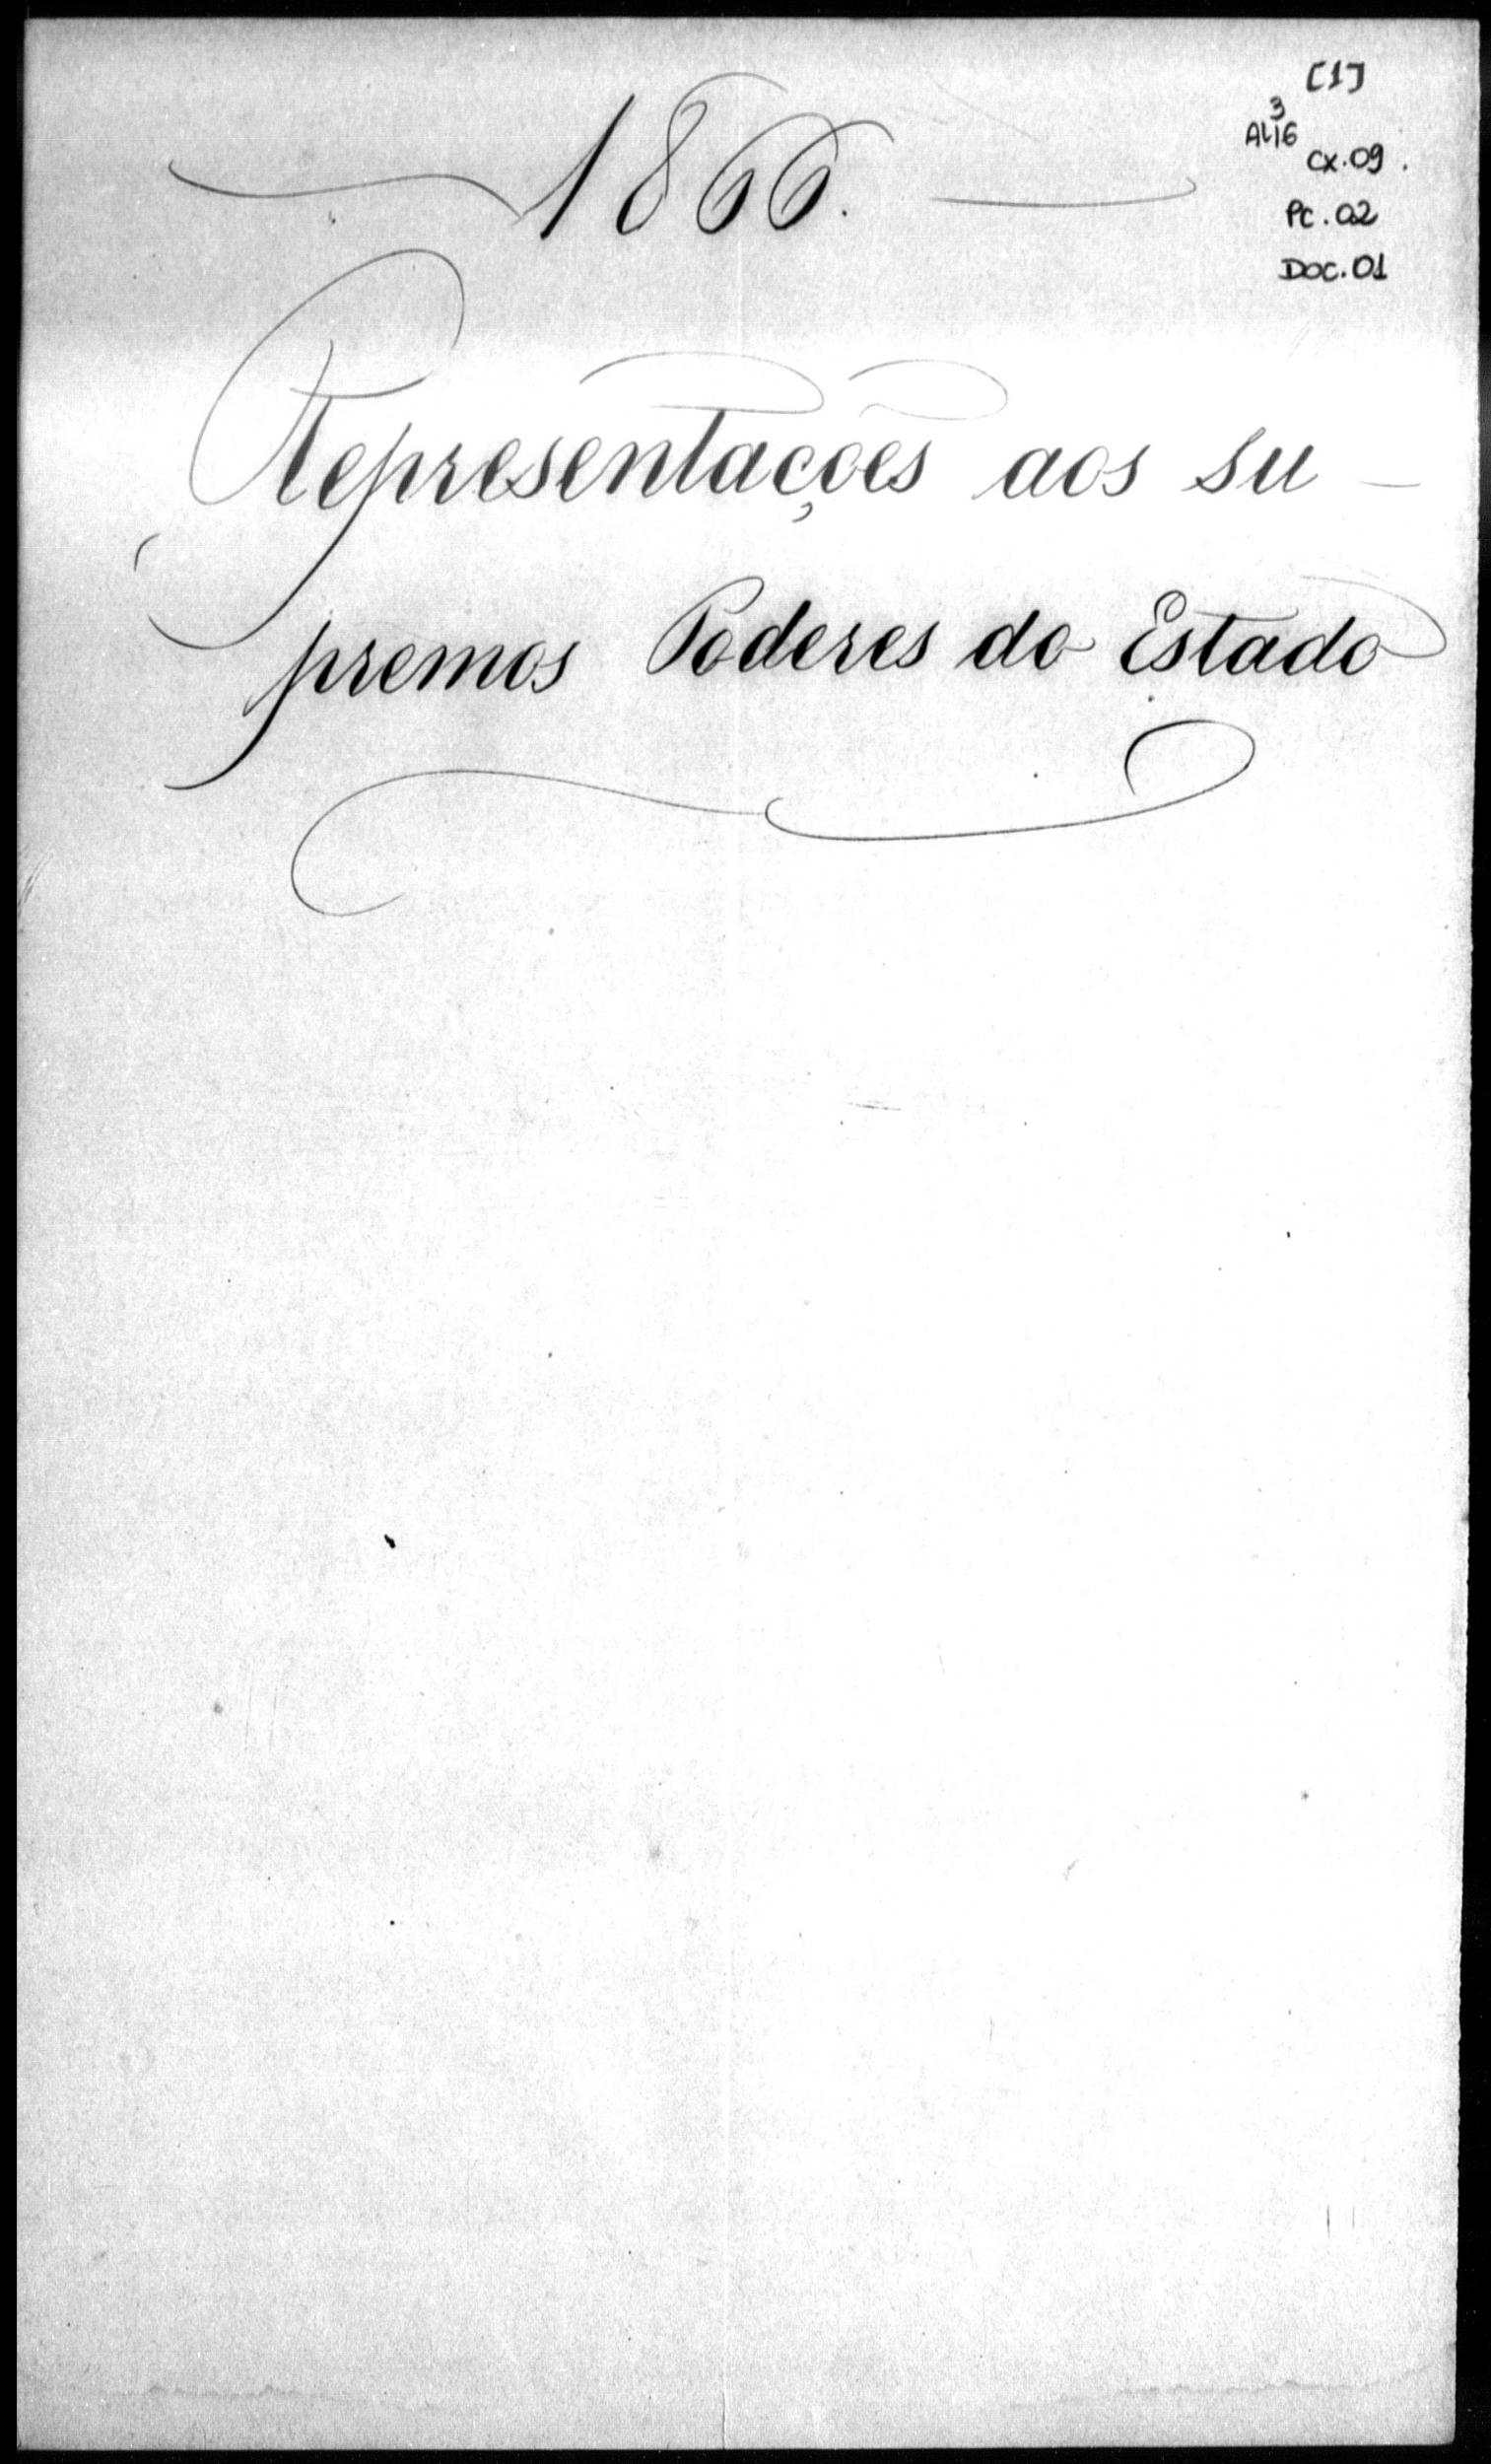 [1]
3
AL16
CX.09.
Pc.02
Doc.01
1866.
Representações aos su-
premos Poderes do Estado